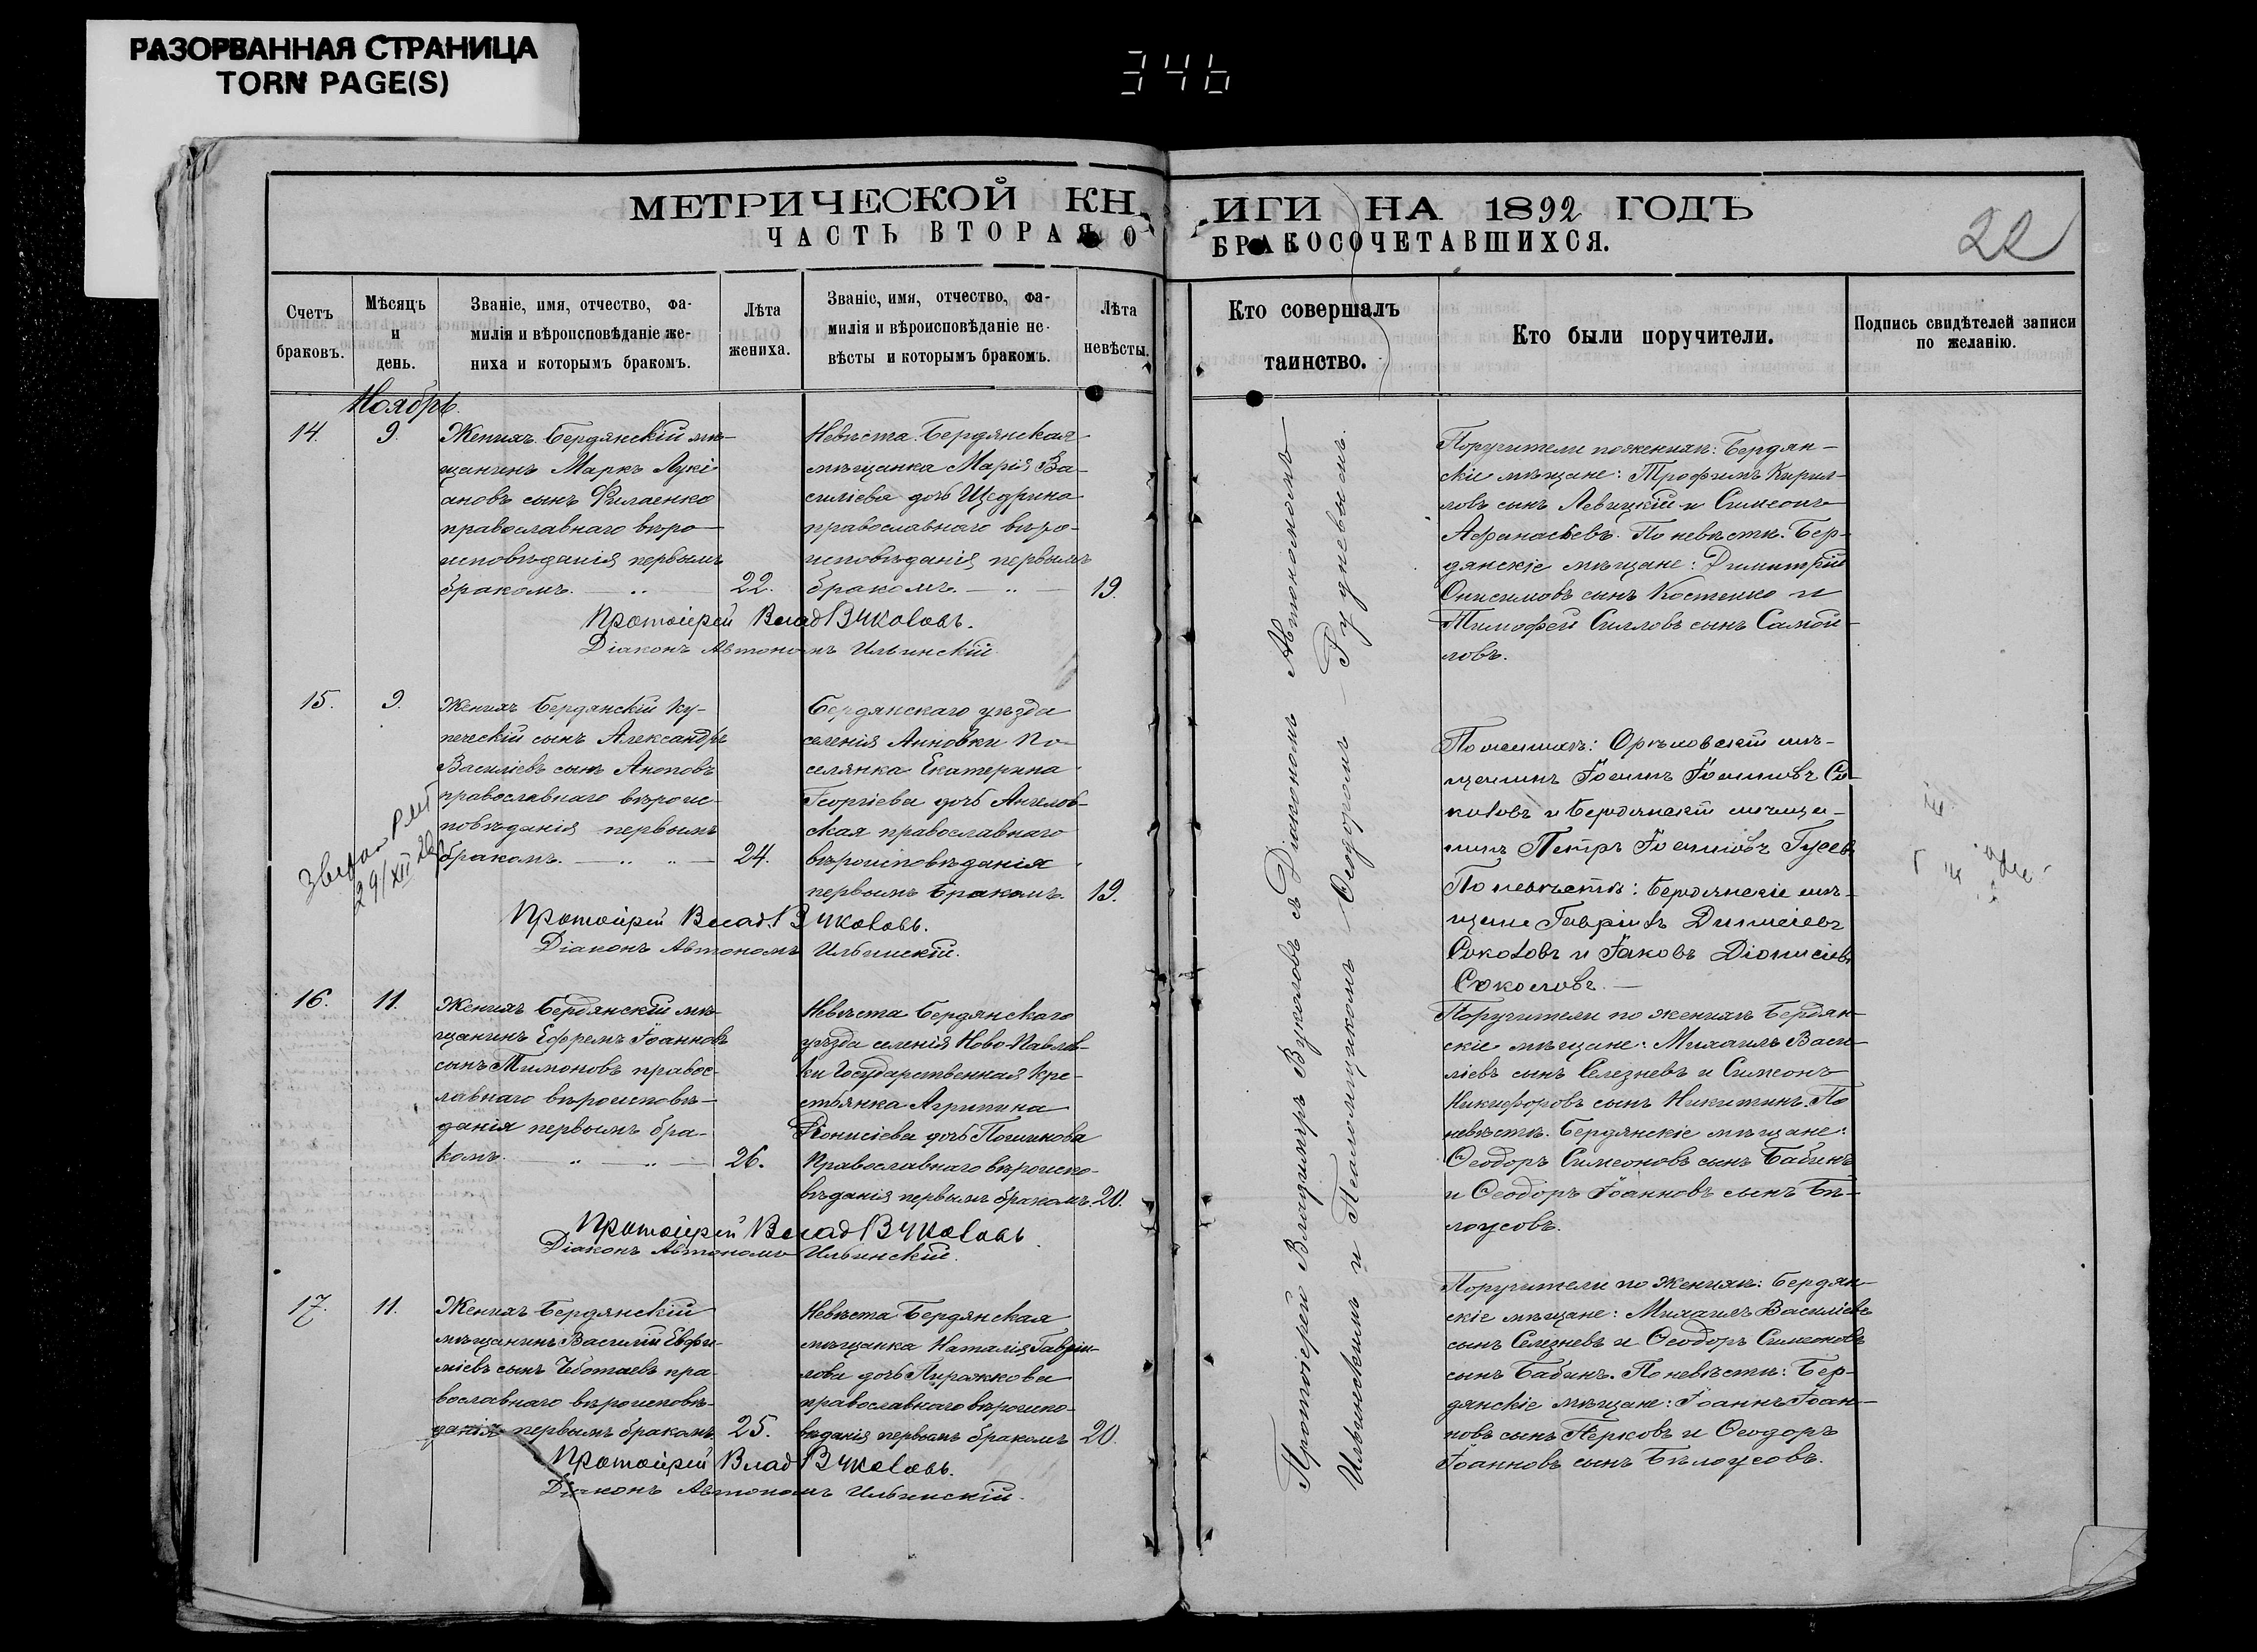 РАЗОРВАННАЯ СТРАНИЦА
TORN PAGE(S)
346
МЕТРИЧЕСКОЙ КНИГИ НА 1892 ГОДЪ
ЧАСТЬ ВТОРАЯ О БРАКОСОЧЕТАВШИХСЯ.
22
Счетъ
браковъ.
Мѣсяцъ
и
день.
Званіе, имя, отчество, фа-
милія и вѣроисповѣданіе же-
ниха и которымъ бракомъ.
Лѣта
жениха.
Званіе, имя, отчество, фа-
милія и вѣроисповѣданіе не-
вѣсты и которымъ бракомъ.
Лѣта
невѣсты.
Кто совершалъ
таинство.
Кто были поручители.
Подпись свидѣтелей записи
по желанію.
Ноябрь
14.
9.
Женихъ Бердянскій мѣ-
щанинъ Маркъ Лукі-
ановъ сынъ Филаенко
православнаго вѣро-
исповѣданія первымъ
бракомъ.
22.
Невѣста Бердянская
мѣщанка Марія Ва-
силіева дочь Щедрина
православнаго вѣро-
исповѣданія первымъ
бракомъ.
19.
Протоіерей Влад Вуколовъ.
Діаконъ Автономъ Ильинскій.
Поручители по женихѣ: Бердян-
скіе мѣщане: Трофимъ Кирил-
ловъ сынъ Левицкій и Симеонъ
Афанасьевъ. По невѣстѣ: Бер-
дянскіе мѣщане: Димитрій
Онисимовъ сынъ Костенко и
Тимофей Силловъ сынъ Самой-
ловъ.
15.
9.
Женихъ Бердянскій ку-
печескій сынъ Александръ
Василіевъ сынъ Аноповъ
православнаго вѣроис-
повѣданія первымъ
бракомъ.
24.
Бердянскаго уѣзда
селенія Анновки по-
селянка Екатерина
Георгіева дочь Ангелов-
ская православнаго
вѣроисповѣданія
первымъ бракомъ.
19.
29/XII
Протоіерей Влад. Вуколовъ.
Діаконъ Автономъ Ильинскій.
По женихѣ: Орѣховскій мѣ-
щанинъ Іоаннъ Іоанновъ Со-
коловъ и Бердянскій мѣща-
нинъ Петръ Іоанновъ Гусевъ
По невѣстѣ: Бердянскіе мѣ-
щане Гавріилъ Діонисіевъ
Соколовъ и Іаковъ Діонисіевъ
Соколовъ.
16.
11.
Женихъ Бердянскій мѣ-
щанинъ Ефремъ Іоанновъ
сынъ Тимоновъ правос-
лавнаго вѣроисповѣ-
данія первымъ бра-
комъ.
26.
Невѣста Бердянскаго
уѣзда селенія Ново-Павлов-
ки Государственная кре-
стьянка Агрипина
Діонисіева дочь Логинова
Православнаго вѣроиспо-
вѣданія первымъ бракомъ.
20.
Протоіерей Влад Вуколовъ
Діаконъ Автономъ Ильинскій.
Поручители по женихѣ Бердян-
скіе мѣщане: Михаилъ Васи-
ліевъ сынъ Селезневъ и Симеонъ
Никифоровъ сынъ Никитинъ. По
невѣстѣ: Бердянскіе мѣщане:
Ѳеодоръ Симеоновъ сынъ Бабинъ
и Ѳеодоръ Іоанновъ сынъ Бѣ-
лоусовъ.
17.
11.
Женихъ Бердянскій
мѣщанинъ Василій Евфи-
міевъ сынъ Чеботаевъ пра-
вославнаго вѣроисповѣ-
данія первымъ бракомъ
25.
Невѣста Бердянская
мѣщанка Наталія Гавріи-
лова дочь Пирожкова
православнаго вѣроиспо-
вѣданія первымъ бракомъ
20.
Протоіерей Влад Вуколовъ.
Діаконъ Автономъ Ильинскій.
Поручители по женихѣ: Бердян-
скіе мѣщане: Михаилъ Василіевъ
сынъ Селезневъ и Ѳеодоръ Симеоновъ
сынъ Бабинъ. По невѣстѣ: Бер-
дянскіе мѣщане: Іоаннъ Іоан-
новъ сынъ Перковъ и Ѳеодоръ
Іоанновъ сынъ Бѣлоусовъ.
Протоіерей Владимиръ Вуколовъ съ Діакономъ Автономомъ
Ильинскимъ и Псаломщикомъ Ѳеодоромъ Рудневымъ.